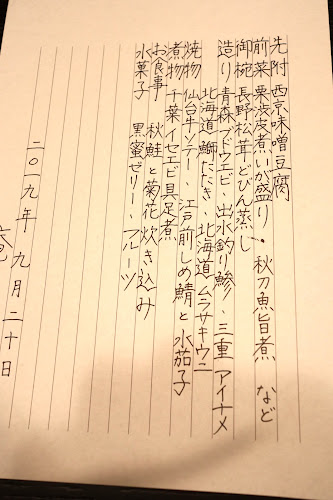 先附 西京味噌豆腐
前菜 栗渋皮煮いが盛り・秋刀魚旨煮 など
御椀 長野松茸どびん蒸し
造り 青森ブドウエビ・出水釣り鯵・三重アイナメ
北海道鰤たたき・北海道ムラサキウニ
焼物 仙台牛ソテー・江戸前しめ鯖と水茄子
煮物 千葉イセエビ具足煮
お食事 秋鮭と菊花炊き込み
水菓子 黒蜜ゼリー・フルーツ
二〇一九年 九月二十日